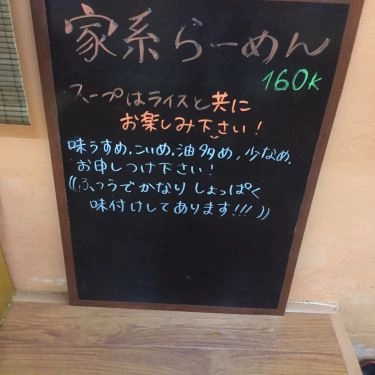 家系らーめん
160K
スープはライスと共に
お楽しみ下さい！
味うすめ、こいめ、油多め、少なめ、
お申しつけ下さい！
((ふつうでかなりしょっぱく
味付けしてあります!!!))